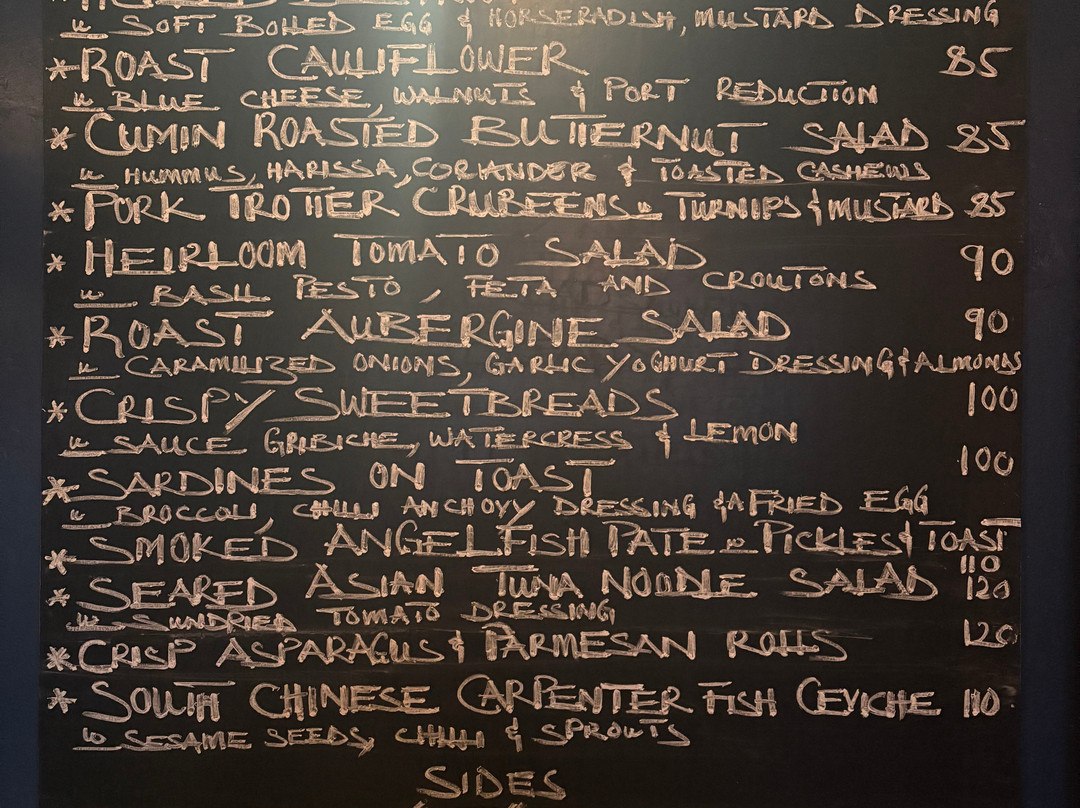 w SOFT BOILED EGG & HORSERADISH, MUSTARD DRESSING
* ROAST CAULIFLOWER 85
w BLUE CHEESE, WALNUTS & PORT REDUCTION
* CUMIN ROASTED BUTTERNUT SALAD 85
w HUMMUS, HARISSA, CORIANDER & TOASTED CASHEWS
* PORK TROTTER CRUBEENS w TURNIPS & MUSTARD 85
* HEIRLOOM TOMATO SALAD 90
w BASIL PESTO, FETA AND CROUTONS
* ROAST AUBERGINE SALAD 90
w CARAMILIZED ONIONS, GARLIC YOGHURT DRESSING & ALMONDS
* CRISPY SWEETBREADS 100
w SAUCE GRIBICHE, WATERCRESS & LEMON
* SARDINES ON TOAST 100
w BROCCOLI, CHILLI ANCHOVY DRESSING & A FRIED EGG
* SMOKED ANGELFISH PATE w PICKLES & TOAST
110
* SEARED ASIAN TUNA NOODLE SALAD 120
w SUNDRIED TOMATO DRESSING
* CRISP ASPARAGUS & PARMESAN ROLLS 120
* SOUTH CHINESE CARPENTER FISH CEVICHE 110
w SESAME SEEDS, CHILLI & SPROUTS
SIDES